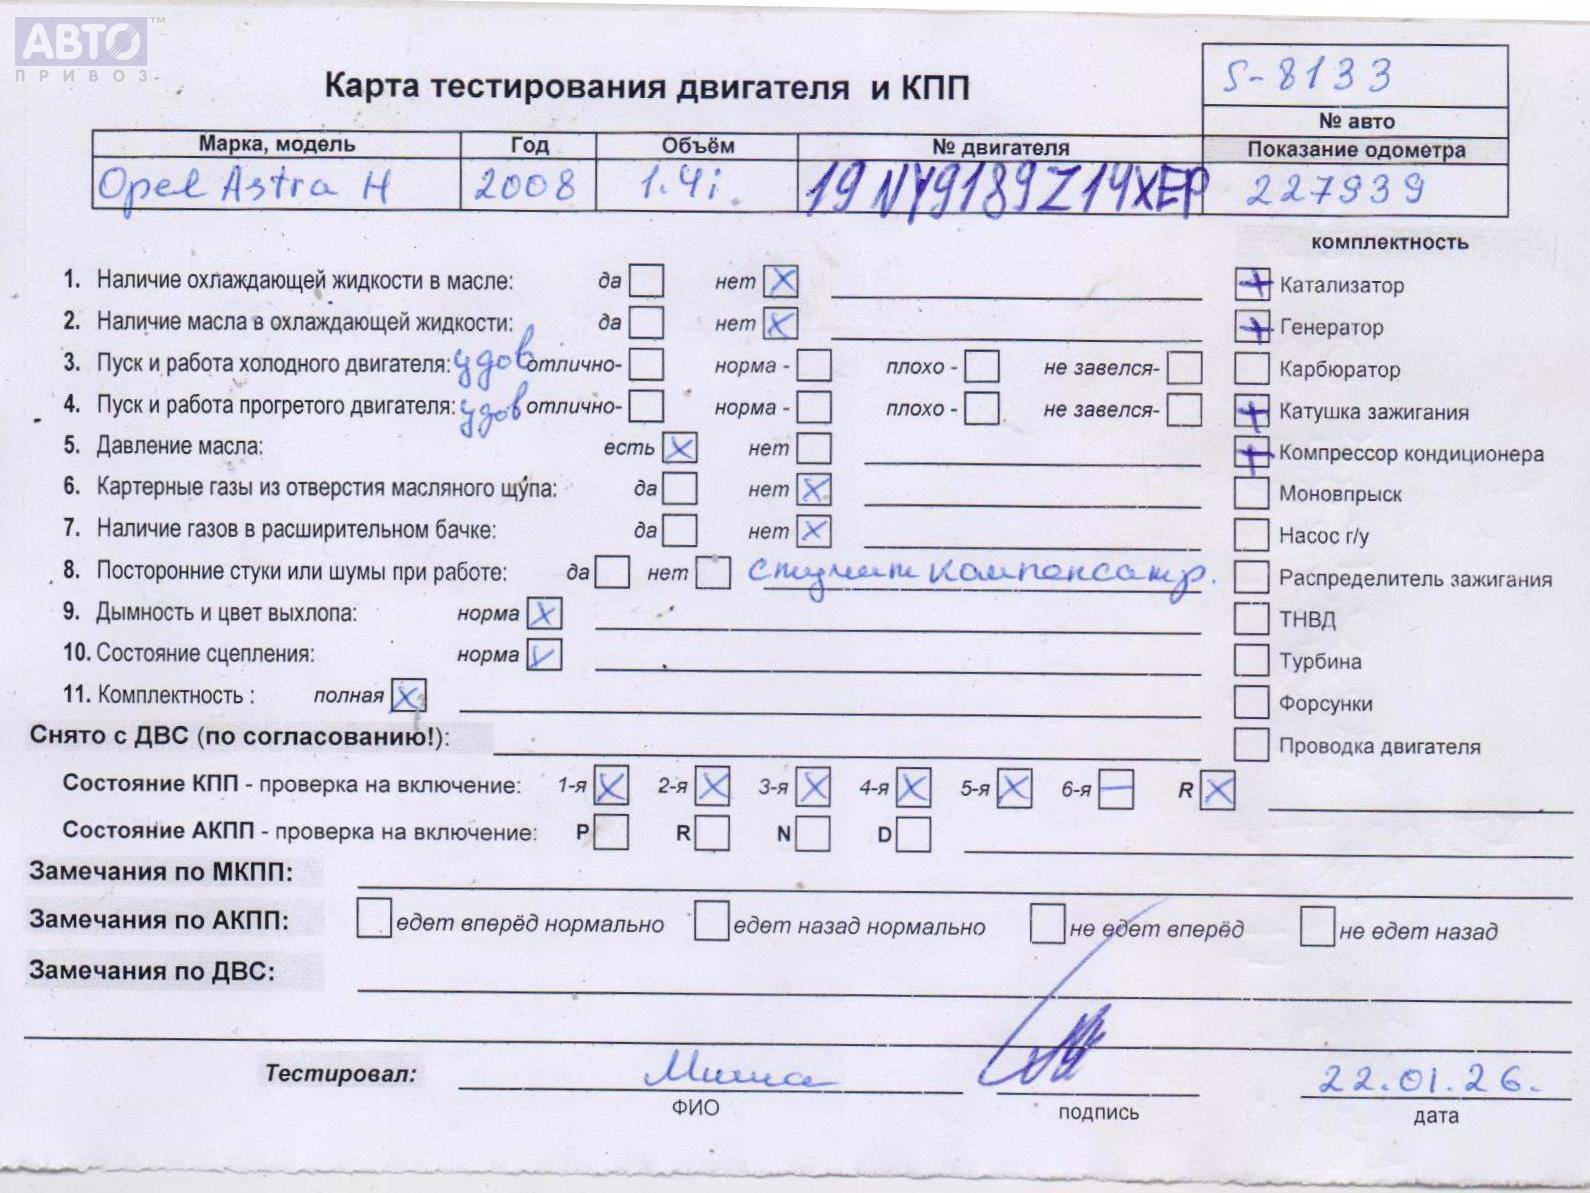 АВТО™
ПРИВОЗ
S-8133
Карта тестирования двигателя и КПП
№ авто
Марка, модель Год Объём № двигателя Показание одометра
Opel Astra H 2008 1.4i 19NY9189Z14XEP 227939
комплектность
1. Наличие охлаждающей жидкости в масле: да нет X
Катализатор
2. Наличие масла в охлаждающей жидкости: да нет X
Генератор
3. Пуск и работа холодного двигателя: удов отлично- норма - плохо - не завелся-
Карбюратор
4. Пуск и работа прогретого двигателя: удов отлично- норма - плохо - не завелся-
Катушка зажигания
5. Давление масла: есть X нет
Компрессор кондиционера
6. Картерные газы из отверстия масляного щупа: да нет X
Моновпрыск
7. Наличие газов в расширительном бачке: да нет X
Насос г/у
8. Посторонние стуки или шумы при работе: да нет стучит компенсатр.
Распределитель зажигания
9. Дымность и цвет выхлопа: норма X
ТНВД
10. Состояние сцепления: норма V
Турбина
11. Комплектность : полная X
Форсунки
Снято с ДВС (по согласованию!):
Проводка двигателя
Состояние КПП - проверка на включение: 1-я X 2-я X 3-я X 4-я X 5-я X 6-я — R X
Состояние АКПП - проверка на включение: P R N D
Замечания по МКПП:
Замечания по АКПП: едет вперёд нормально едет назад нормально не едет вперёд не едет назад
Замечания по ДВС:
Тестировал: Миша 22.01.26.
ФИО подпись дата